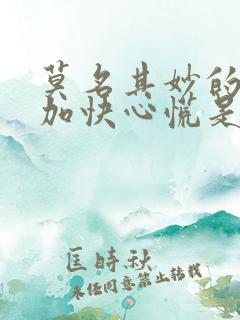 莫名其妙的
加快心慌是
匡時秋
未经同意禁止转载